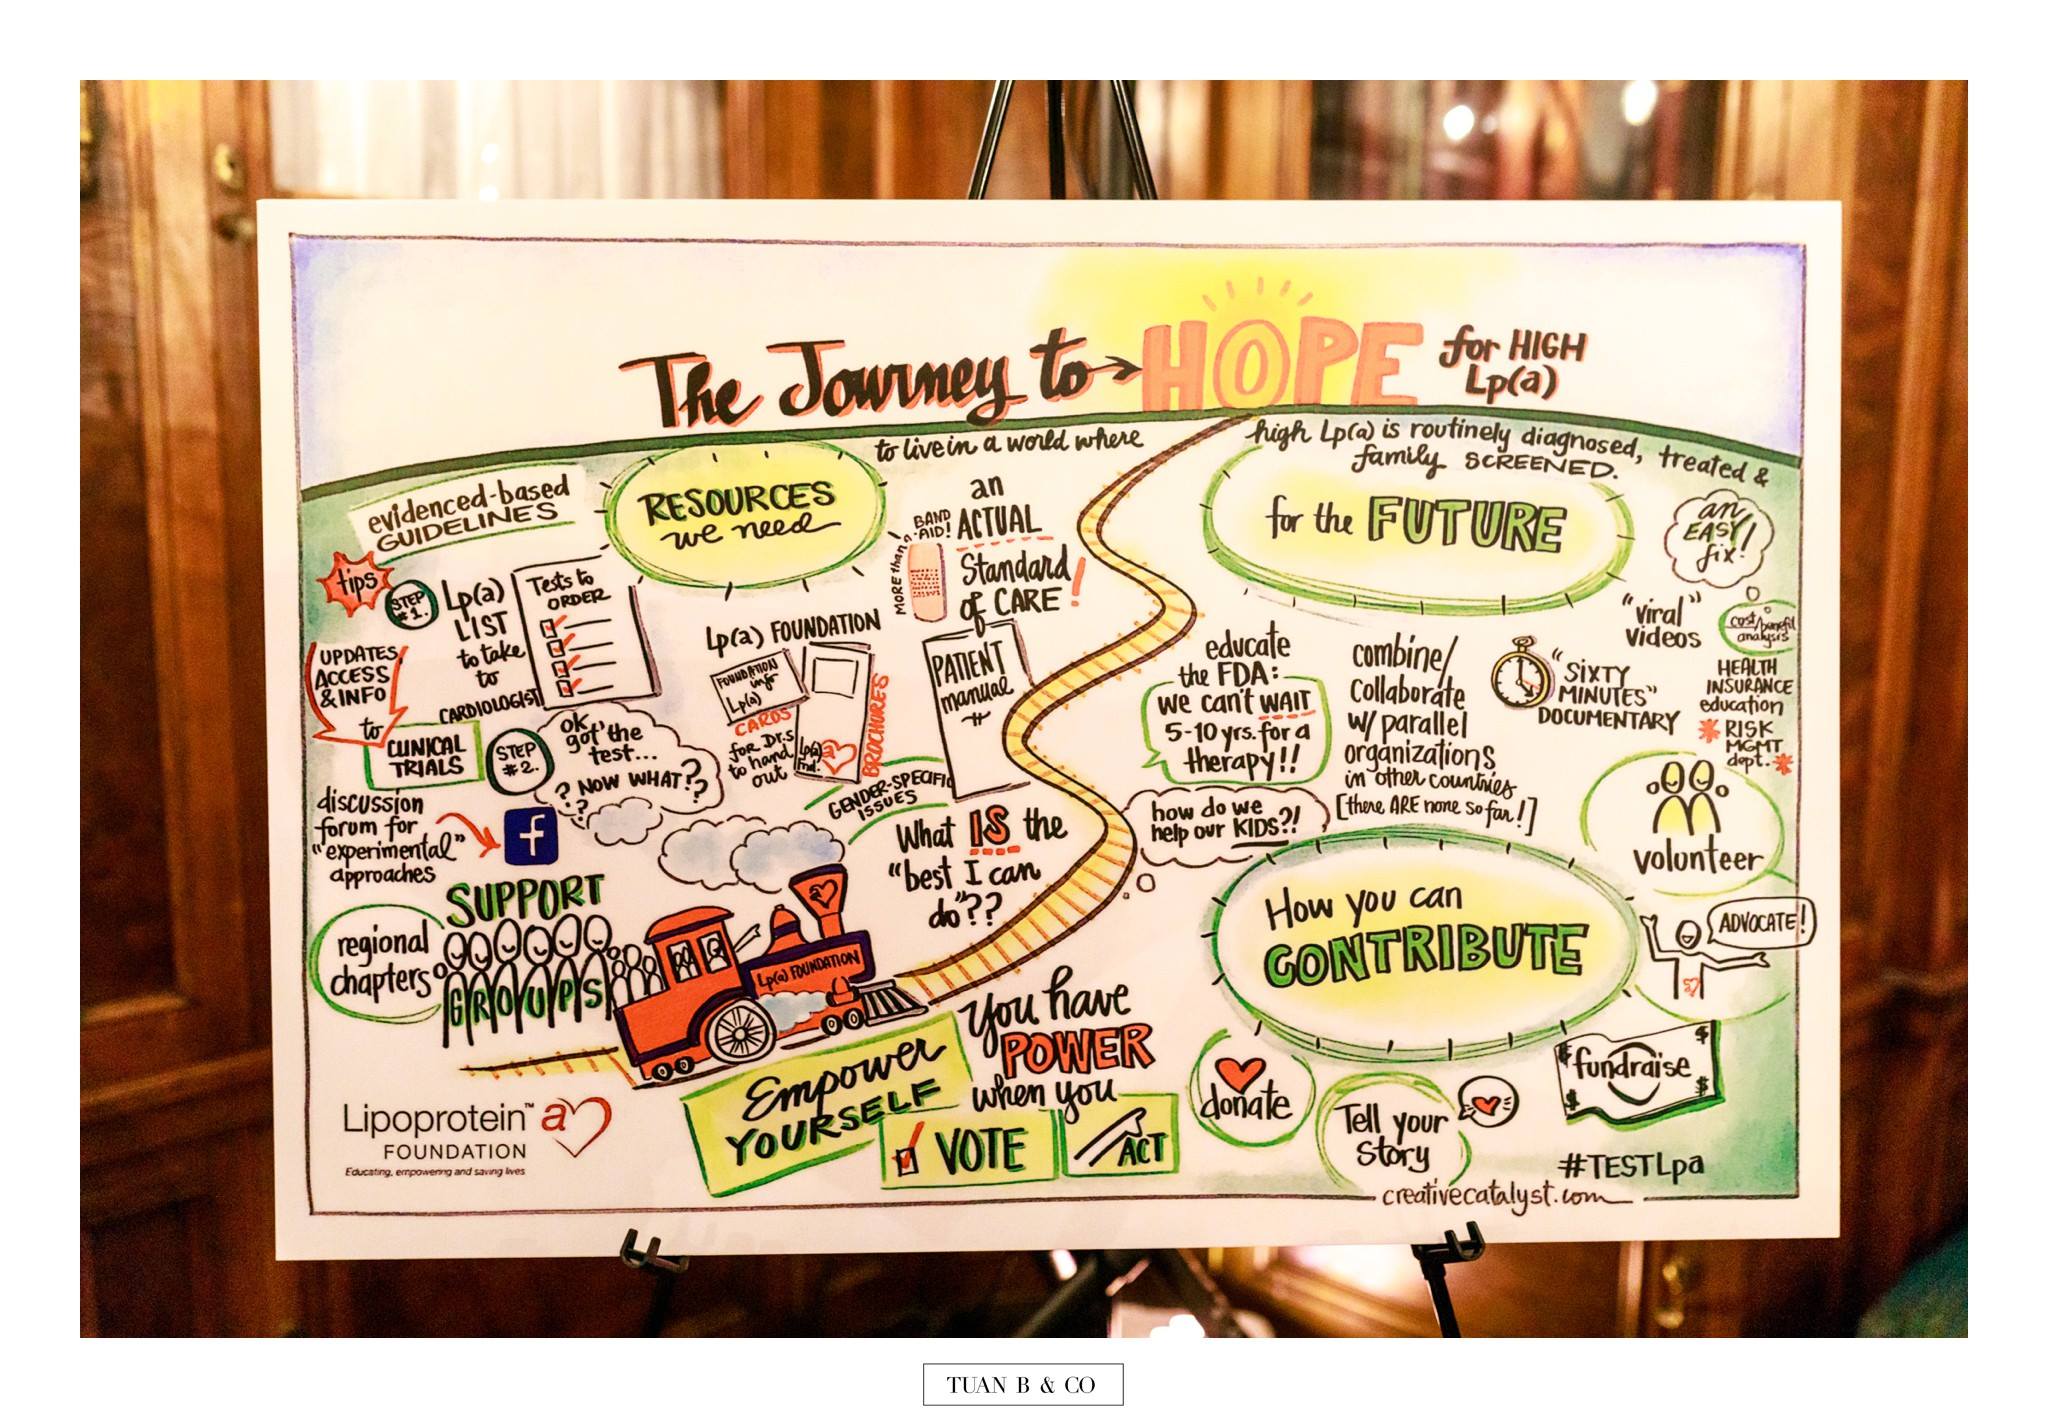 The Journey to HOPE for HIGH
Lp(a)
to live in a world where
high Lp(a) is routinely diagnosed, treated &
family SCREENED.
RESOURCES
we need
evidenced-based
GUIDELINES
tips
STEP
#1.
Lp(a)
LIST
to take
to
CARDIOLOGIST
Tests to
ORDER
UPDATES,
ACCESS
& INFO
to
CLINICAL
TRIALS
STEP
#2.
ok
got the
test...
? NOW WHAT??
??
discussion
forum for
"experimental"
approaches
f
SUPPORT
GROUPS
regional
chapters
Lp(a) FOUNDATION
FOUNDATION
info
Lp(a)
CARDS
for Dr.s
to hand
out
Lp(a)
Fnd.
BROCHURES
GENDER-SPECIFIC
ISSUES
MORE than a BAND
-AID!
an
ACTUAL
Standard
of CARE!
PATIENT
manual
What IS the
"best I can
do"??
Lp(a) FOUNDATION
for the FUTURE
an
EASY
fix!
cost/benefit
analysis
"viral"
videos
educate
the FDA:
we can't WAIT
5-10 yrs. for a
therapy!!
combine/
Collaborate
w/ parallel
organizations
in other countries
[there ARE none so far!]
"SIXTY
MINUTES"
DOCUMENTARY
HEALTH
INSURANCE
education
* RISK
MGMT
dept. *
how do we
help our KIDS?!
How you can
CONTRIBUTE
volunteer
ADVOCATE!
fundraise
$ $ $ $
donate
Tell your
Story
#TESTLpa
You have
POWER
when you
Empower
YOURSELF
VOTE
ACT
Lipoprotein™ a
FOUNDATION
Educating, empowering and saving lives
creativecatalyst.com
TUAN B & CO